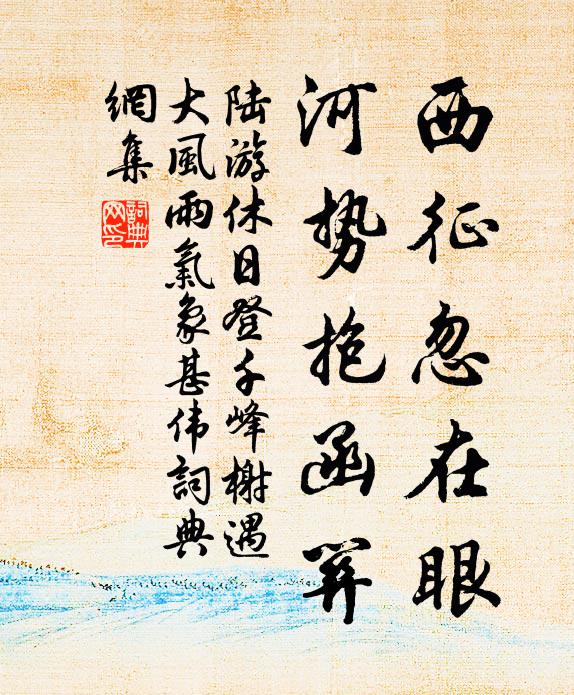 西征忽在眼
河势抱函关
陆游休日登千峰榭遇
大風雨氣象甚伟詞典
網集
詞典
网印